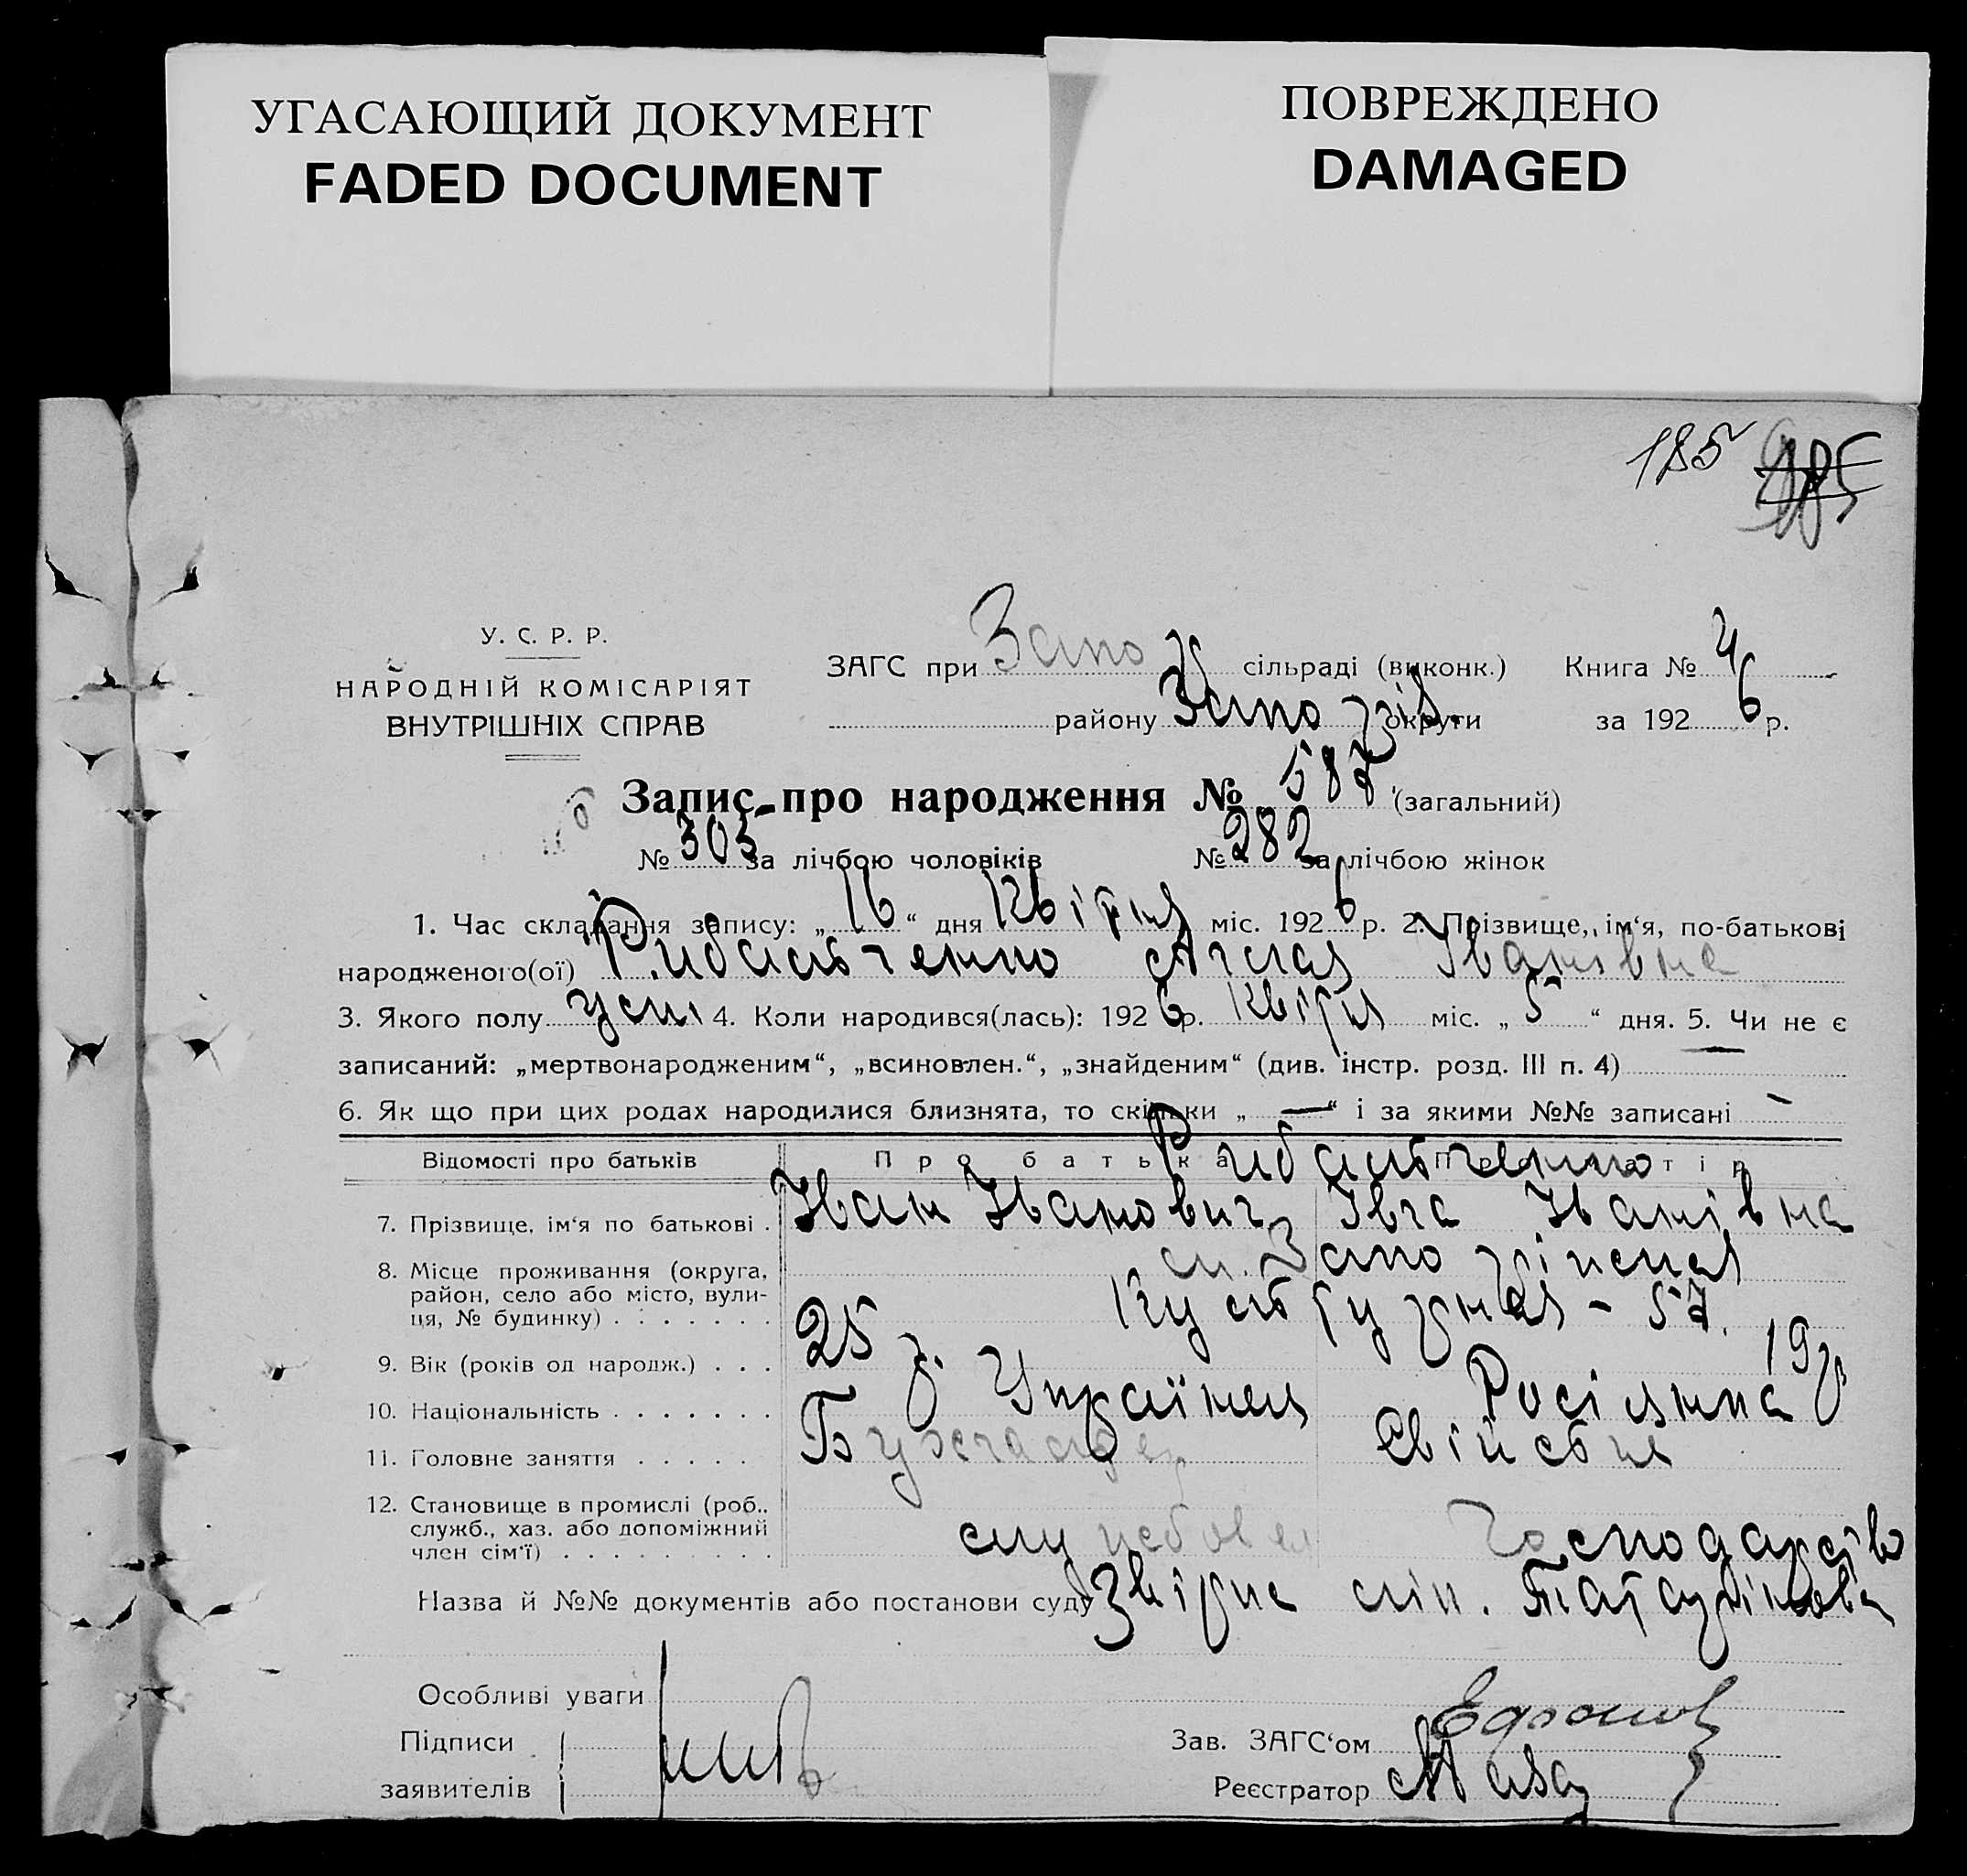 УГАСАЮЩИЙ ДОКУМЕНТ
FADED DOCUMENT
ПОВРЕЖДЕНО
DAMAGED
185
У. С. Р. Р.
НАРОДНІЙ КОМІСАРІЯТ
ВНУТРІШНІХ СПРАВ
ЗАГС при Запо сільраді (виконк.) Книга № 4
району Запоріз. округи за 1926 р.
Запис про народження № 587 (загальний)
№ 305 за лічбою чоловіків № 282 за лічбою жінок
1. Час складання запису: „16“ дня Квітня міс. 1926 р. 2. Прізвище, ім‘я, по-батькові
народженого(ої) Рибальченко Аглая Іванівна
3. Якого полу 4. Коли народився(лась): 1926 р. Квітня міс. „5“ дня. 5. Чи не є
записаний: „мертвонародженим“, „всиновлен.“, „знайденим“ (див. інстр. розд. III п. 4) —
6. Як що при цих родах народилися близнята, то скільки „—“ і за якими №№ записані —
Відомості про батьків Про батька Про матір
Рибальченко
7. Прізвище, ім‘я по батькові . Іван Іванович Івга Іванівна
8. Місце проживання (округа,
район, село або місто, вули-
ця, № будинку) . . . . . . . Культурная - 57.
9. Вік (років од народж.) . . . 25 р. 19 р.
10. Національність . . . . . . . Українец Росіянка
11. Головне заняття . . . . . Бухгалтер Свійське
12. Становище в промислі (роб.,
служб., хаз. або допоміжний
член сім‘ї) . . . . . . . . . службовец господарство
Назва й №№ документів або постанови суду Звірка
Особливі уваги
Підписи
заявителів
Зав. ЗАГС‘ом
Реєстратор